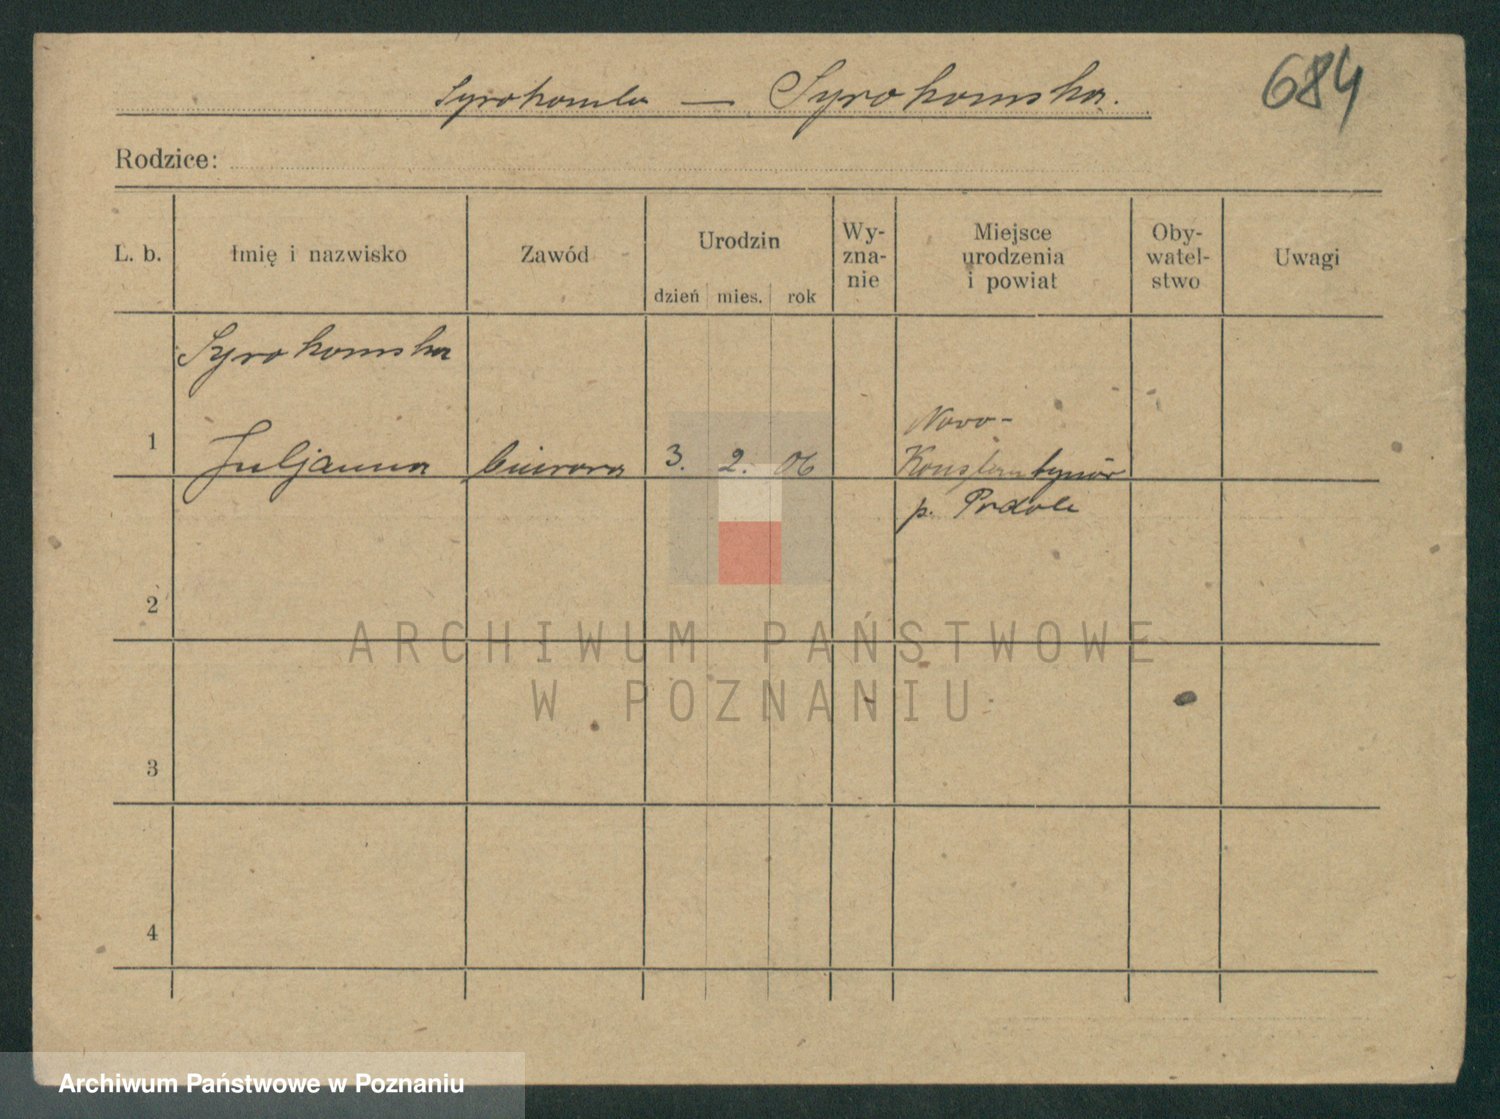 684
Syrokomla — Syrokomska.
Rodzice:
L. b.
Imię i nazwisko
Zawód
Urodzin
dzień mies. rok
Wy-
zna-
nie
Miejsce
urodzenia
i powiat
Oby-
watel-
stwo
Uwagi
Syrokomska
1 Juljanna biurowa 3. 2. 06
Nowo-
Konstantynów
p. Podole
2
3
4
ARCHIWUM PAŃSTWOWE
W POZNANIU
Archiwum Państwowe w Poznaniu